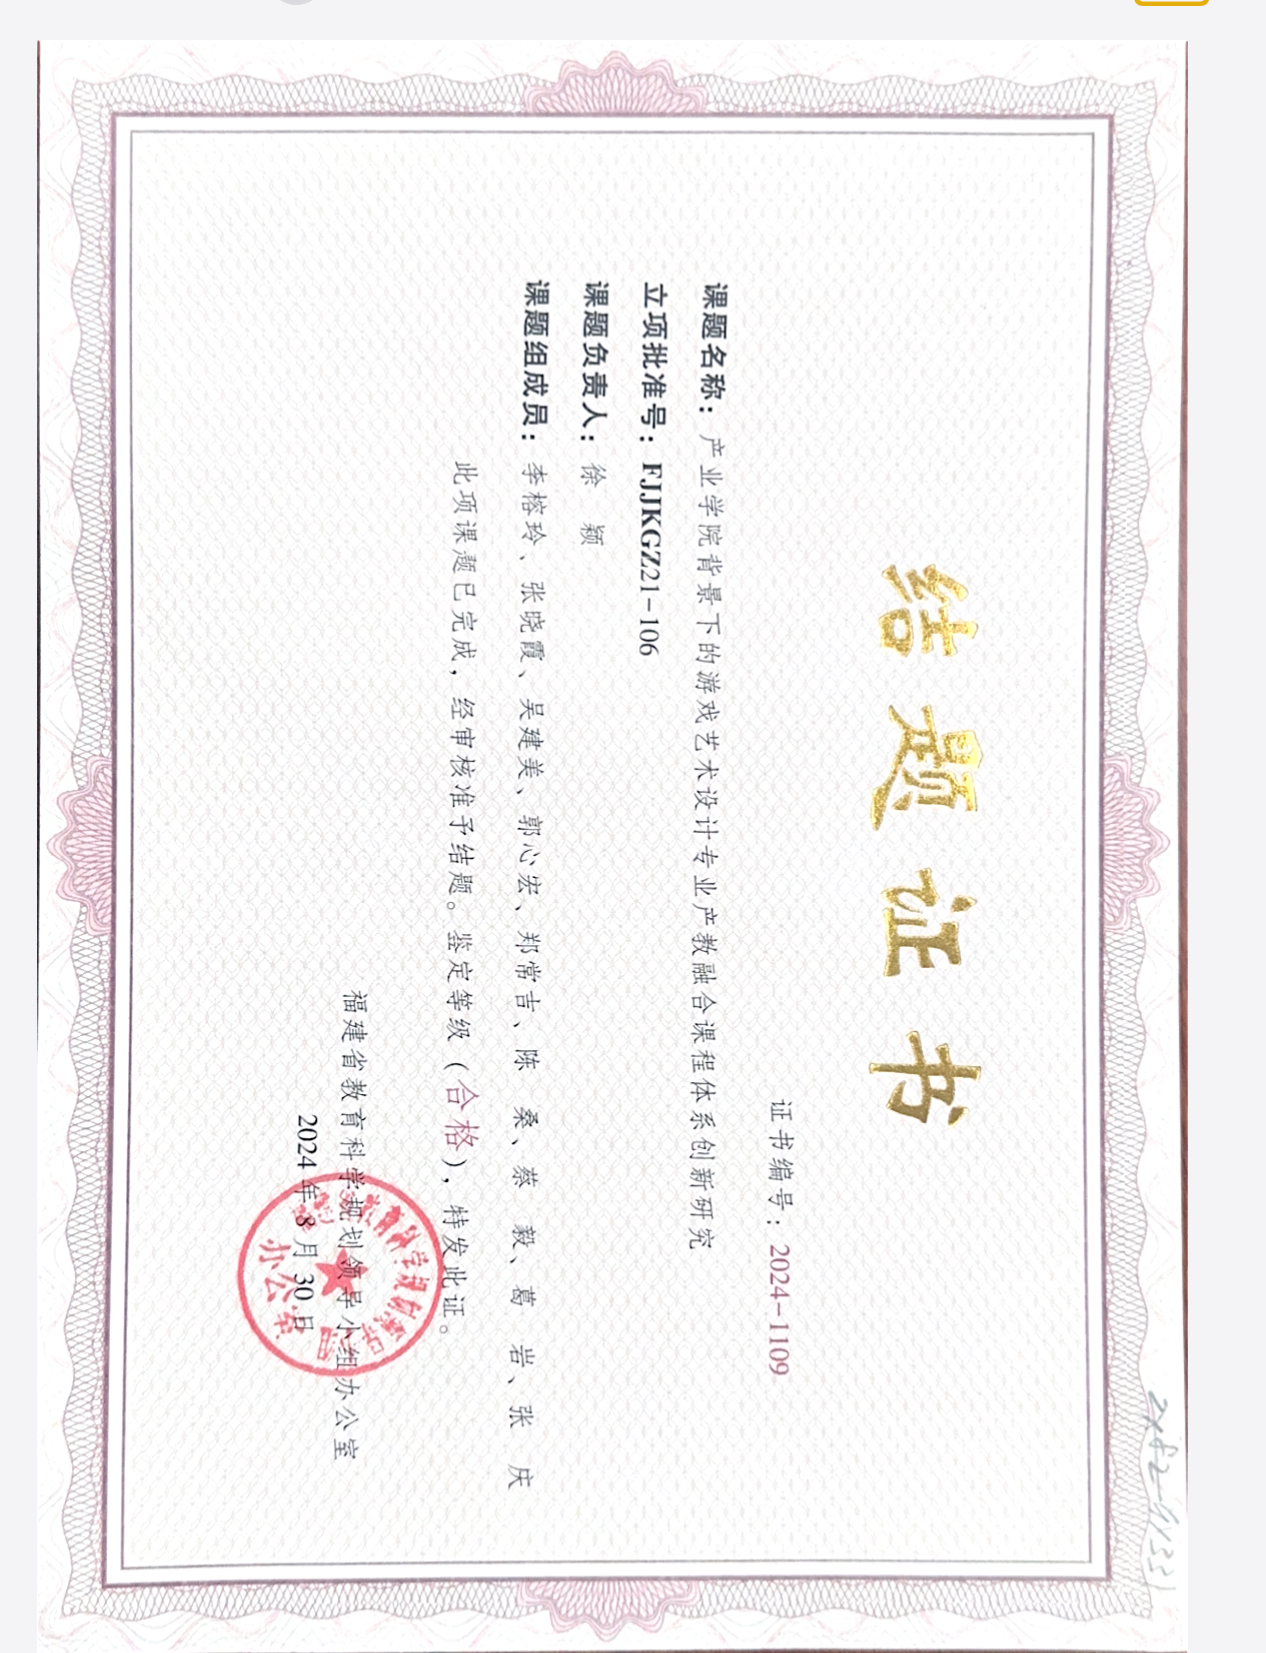 结题证书
证书编号：2024-1109
课题名称：产业学院背景下的游戏艺术设计专业产教融合课程体系创新研究
立项批准号：FJJKGZ21-106
课题负责人：徐 颖
课题组成员：李榕玲、张晓霞、吴建美、郭心宏、郑常吉、陈 桑、蔡 毅、葛 岩、张 庆
此项课题已完成，经审核准予结题。鉴定等级（合格），特发此证。
福建省教育科学规划领导小组办公室
2024年8月30日
办公室